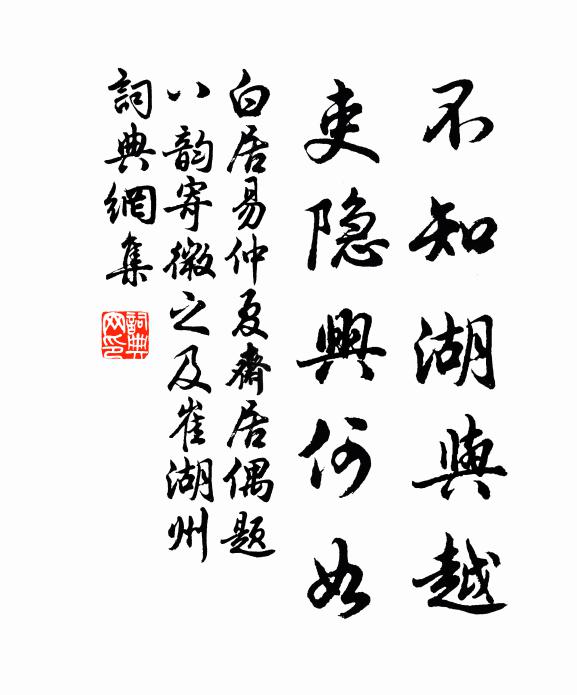 不知湖與越
吏隐興何如
白居易仲夏齋居偶題
八韵寄微之及崔湖州
詞典網集
詞典网印